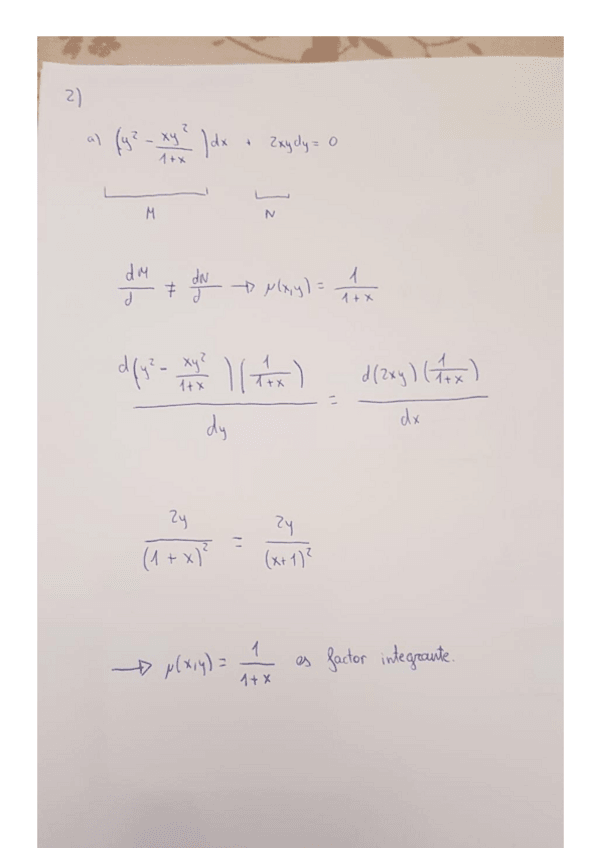 2)
a) (y² - xy²/(1+x)) dx + 2xydy = 0
M N
dM/d ≠ dN/d → μ(x,y) = 1/(1+x)
d(y² - xy²/(1+x))(1/(1+x))/dy = d(2xy)(1/(1+x))/dx
2y/(1+x)² = 2y/(x+1)²
→ μ(x,y) = 1/(1+x) es factor integrante.